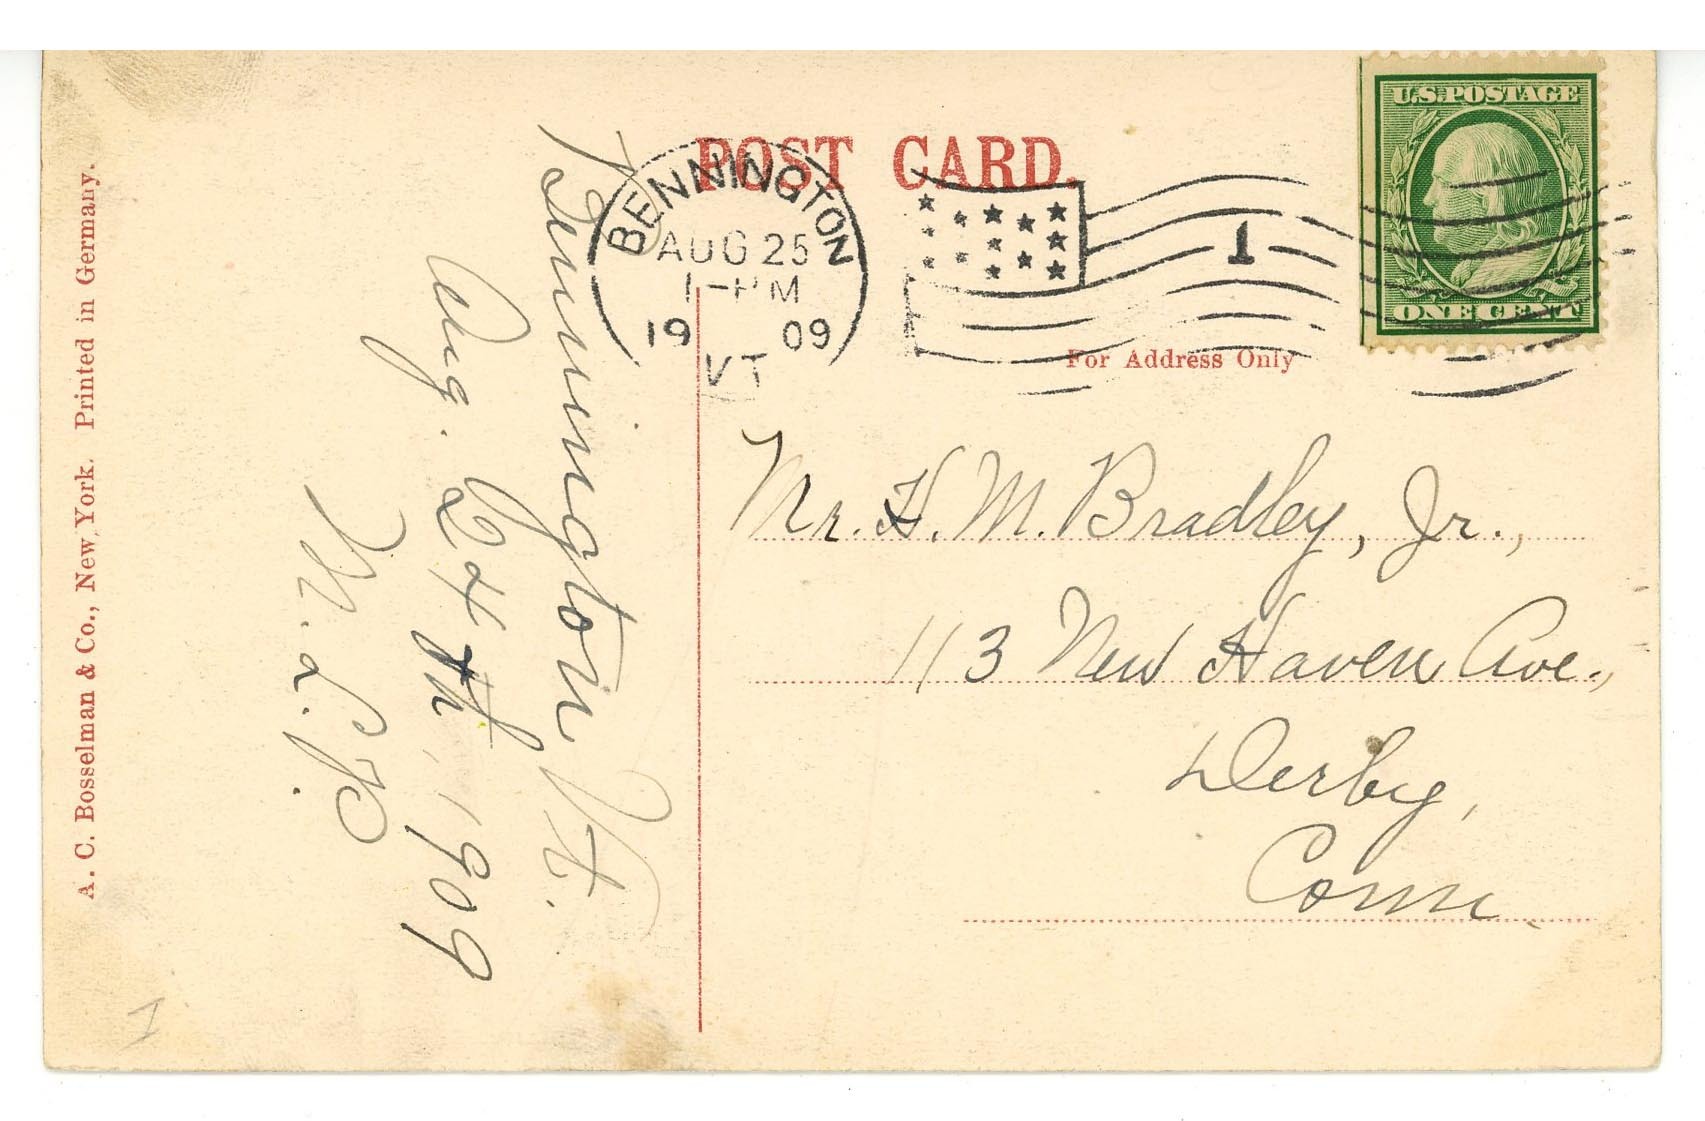 POST CARD.
U.S. POSTAGE
ONE CENT
BENNINGTON
AUG 25
1-PM
19 09
VT
1
For Address Only
Mr. H. M. Bradley, Jr.,
113 New Haven Ave.,
Derby,
Conn.
Bennington Vt.
Aug. 24th, 1909
M. L. P.
A. C. Bosselman & Co., New York. Printed in Germany.